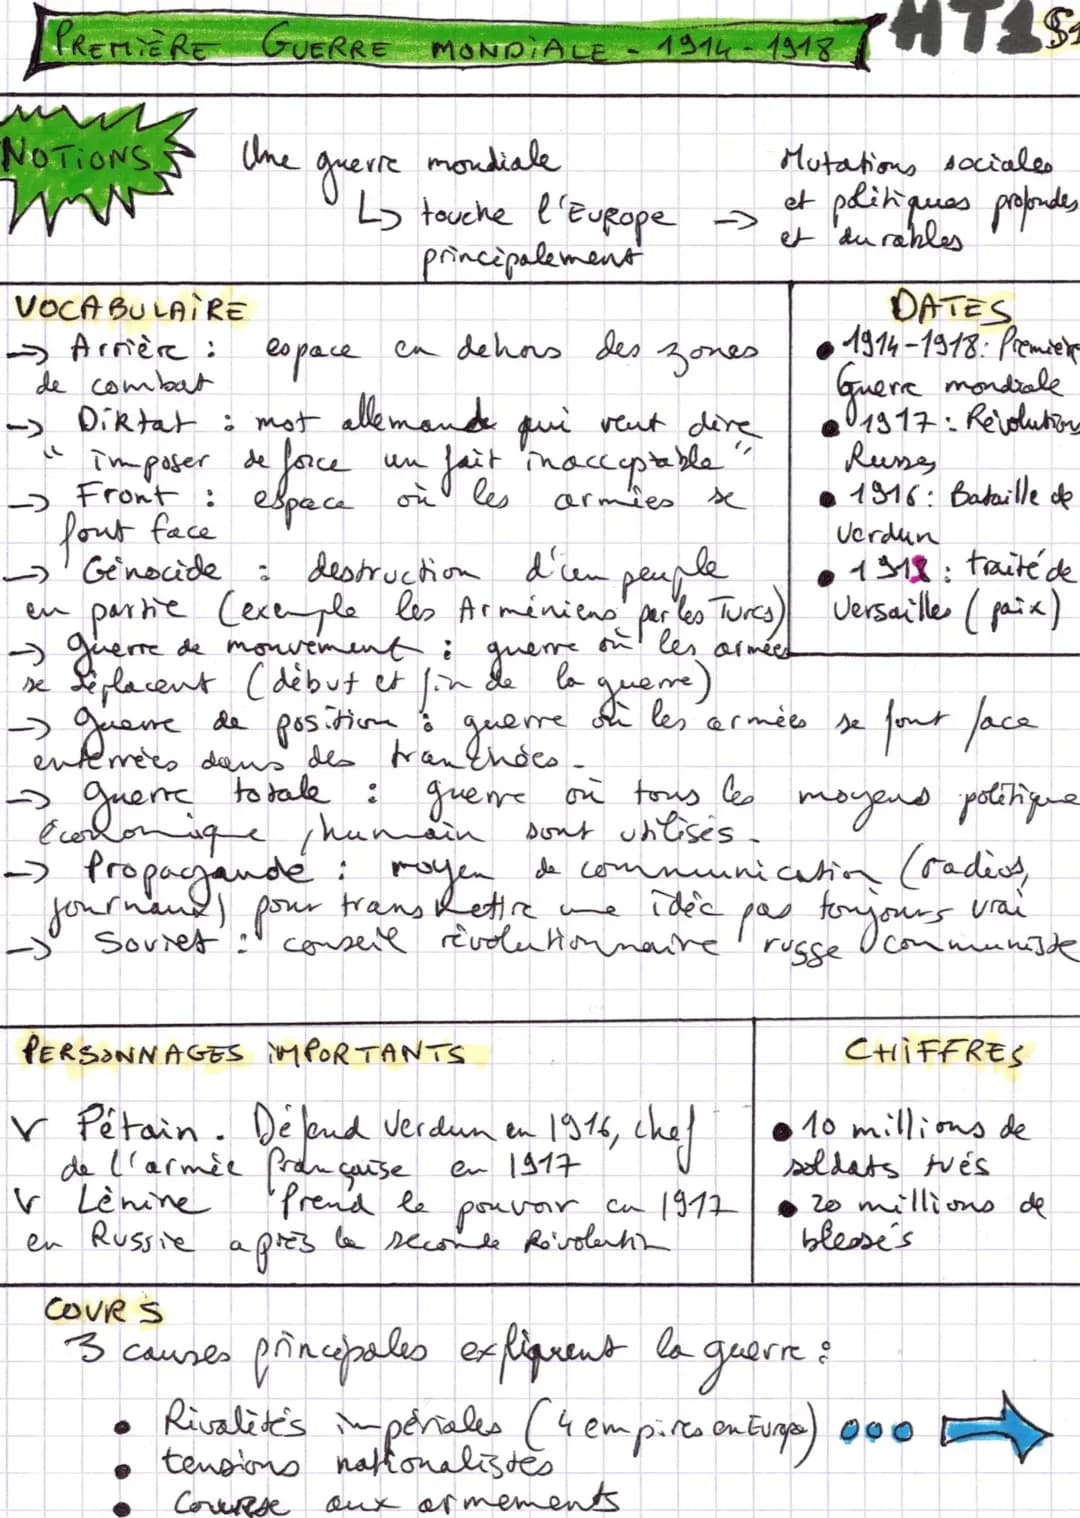 PREMIÈRE GUERRE MONDIALE - 1914-1918
HT1 §1
NOTIONS
Une guerre mondiale
↳ touche l'Europe principalement
→ Mutations sociales
et politiques profondes
et durables
VOCABULAIRE
→ Arrière : espace en dehors des zones
de combat
→ Diktat : mot allemand qui veut dire
"imposer de force un fait inacceptable"
→ Front : espace où les armées se
font face
→ Génocide : destruction d'un peuple
en partie (exemple les Arméniens par les Turcs)
→ guerre de mouvement : guerre où les armées
se déplacent (début et fin de la guerre)
→ guerre de position : guerre où les armées se font face
enterrées dans des tranchées.
→ guerre totale : guerre où tous les moyens politique
économique, humain sont utilisés.
→ Propagande : moyen de communication (radios,
journaux) pour transmettre une idée pas toujours vrai
→ Soviet : conseil révolutionnaire russe communiste
DATES
• 1914-1918: Première
Guerre mondiale
• 1917: Révolutions
Russes
• 1916: Bataille de
Verdun
• 1918: traité de
Versailles (paix)
PERSONNAGES IMPORTANTS
v Pétain. Défend Verdun en 1916, chef
de l'armée française en 1917
v Lénine Prend le pouvoir en 1917
en Russie après la seconde Révolution
CHIFFRES
• 10 millions de
soldats tués
• 20 millions de
blessés
COURS
3 causes principales expliquent la guerre :
• Rivalités impériales (4 empires en Europe)
• tensions nationalistes
• Course aux armements